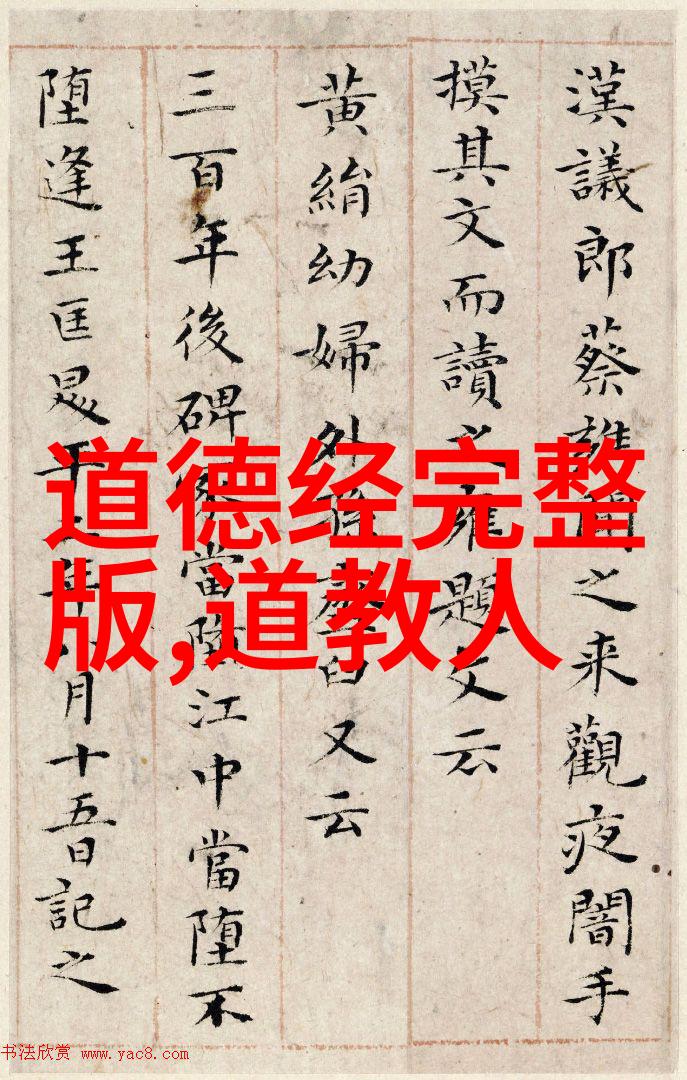 漢議郎蔡雍聞之来觀夜闇手
摸其文而讀之雍題文云
黃絹幼婦外孫臼又云
三百年後碑冢當墮江中當墮不
墮逢王匡平年月十五日記之
道德经完整
版,道教人
书法欣赏 www.yac8.com